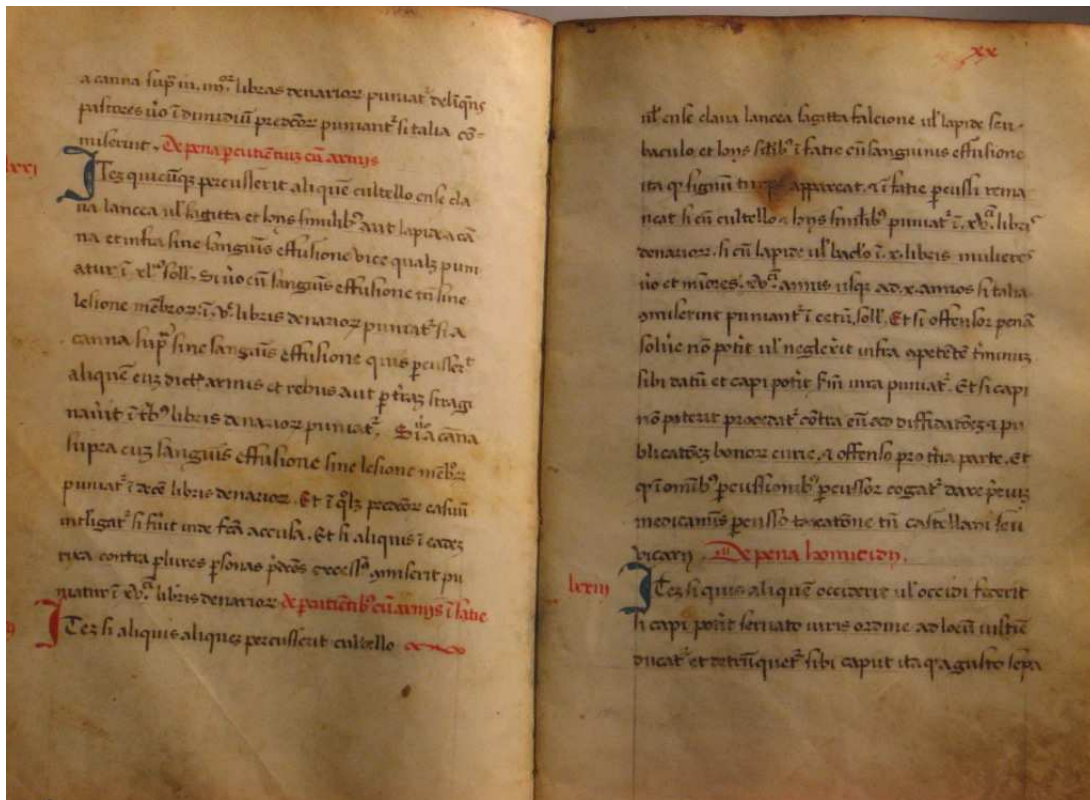 a canna sup̄ in. iiijᵒʳ libras denarioꝝ puniatᷣ delīqn̄s
pastores ṽo ī dimidiū predcōꝝ puniantᷣ si talia cō-
miserint. De pena ꝑcutientiuꝫ cū armis
lxxi
ITeꝫ quicūqꝫ percusserit aliquē cultello ense cla
ua lancea ul̓ sagitta et hijs similibꝰ aut lapide a cā
na et infra sine sanguīs effusione vice qualꝫ puni
atur ī xl soll. Si ṽo cū sanguīs effusione tn̄ sine
lesione mēbroꝝ. ī. vᵉ libris denarioꝝ puniatᷣ si a
canna supᵃ sine sanguīs effusione quis ꝑcusserᵗ
aliquē cuꝫ dictᷤ armis et rebus aut ꝑ tr̄aꝫ stragi
nau̓it ī libris denarioꝝ puniatᷣ. Si ṽo a cāna
supra cuꝫ sanguīs effusione sine lesione mēbꝝ
puniatᷣ ī decē libris denarioꝝ. Et ī qᵒlꝫ predcōꝝ casuū
intligatᷣ si fu̓it inde fcā accusa. Et si aliquis ī eadeꝫ
rixa contra plures ꝑsonas p̄dcōs excessᵘˢ ꝯmiserit pu
niatur ī xvᵃ libris denarioꝝ. de ꝑcutientibꝰ cū armijs ī facie
ITeꝫ si aliquis aliqueꝫ percusserit cultello
xx
ul̓ ense claua lancea sagitta falcione ul̓ lapide seu
baculo et hijs sīlibꝰ ī facie cū sanguinis effusione
ita ꝙ signū turpe appareat. ⁊ ī facie ꝑcussi rema
neat si cū cultello ⁊ hijs similibꝰ puniatᷣ ī. xvᵃ. libris
denarioꝝ. si cū lapide ul̓ bacl̓o ī. x. libris mulieres
ṽo et mīores. xvᵃ. annis usqꝫ ad. x. annos si talia
ꝯmiserint puniantᷣ ī cētū. soll. Et si offensor penā
solu̓e nō pot̓it ul̓ neglex̓it infra ꝯpetētē t̓minuꝫ
sibi datū et capi pot̓it scdm̄ iura puniatᷣ. Et si capi
nō poterit procedatᷣ cōtra eū ad diffidatōeꝫ ⁊ pu
blicatōeꝫ bonoꝝ curie. ⁊ offenso pro t̓tia parte. Et
ꝙ ī omībꝰ ꝑcussionibꝰ ꝑcussor cogatᷣ dare p̄ciuꝫ
medicamīs ꝑcusso taxatōne tn̄ castellani seu
vicarij. De pena homicidij.
lxxiij
ITeꝫ si quis aliquē occiderit ul̓ occidi fecerit
si capi pot̓it seruato iuris ordine ad locū iustitie
ducatᷣ et detrūquetᷣ sibi caput ita ꝙ a gusto sepa